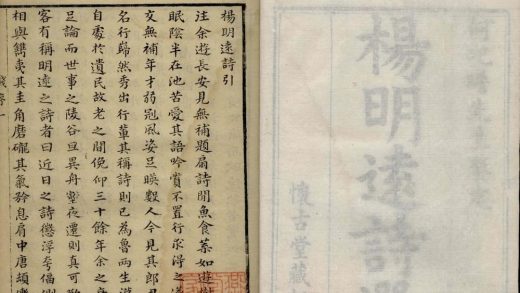 楊明遠詩
懷古堂藏
楊明遠詩引
往余遊長安見無補題扇詩聞魚食葉如遊樹
眠陰半在池苦愛其語吟賞不置行求得之
交無補年才弱冠風姿玉暎數人今見其郎
名行歸然秀出行輩其稱詩則已為魯兩生
自處於遺民故老之間俛仰三十餘年余之
足論而世事之陵谷旦異舟壑夜遷則真可
客有稱明遠之詩者曰近日之詩懲浮夸倡
相與鐫夷其圭角磨礲其氣矜息肩中唐頫